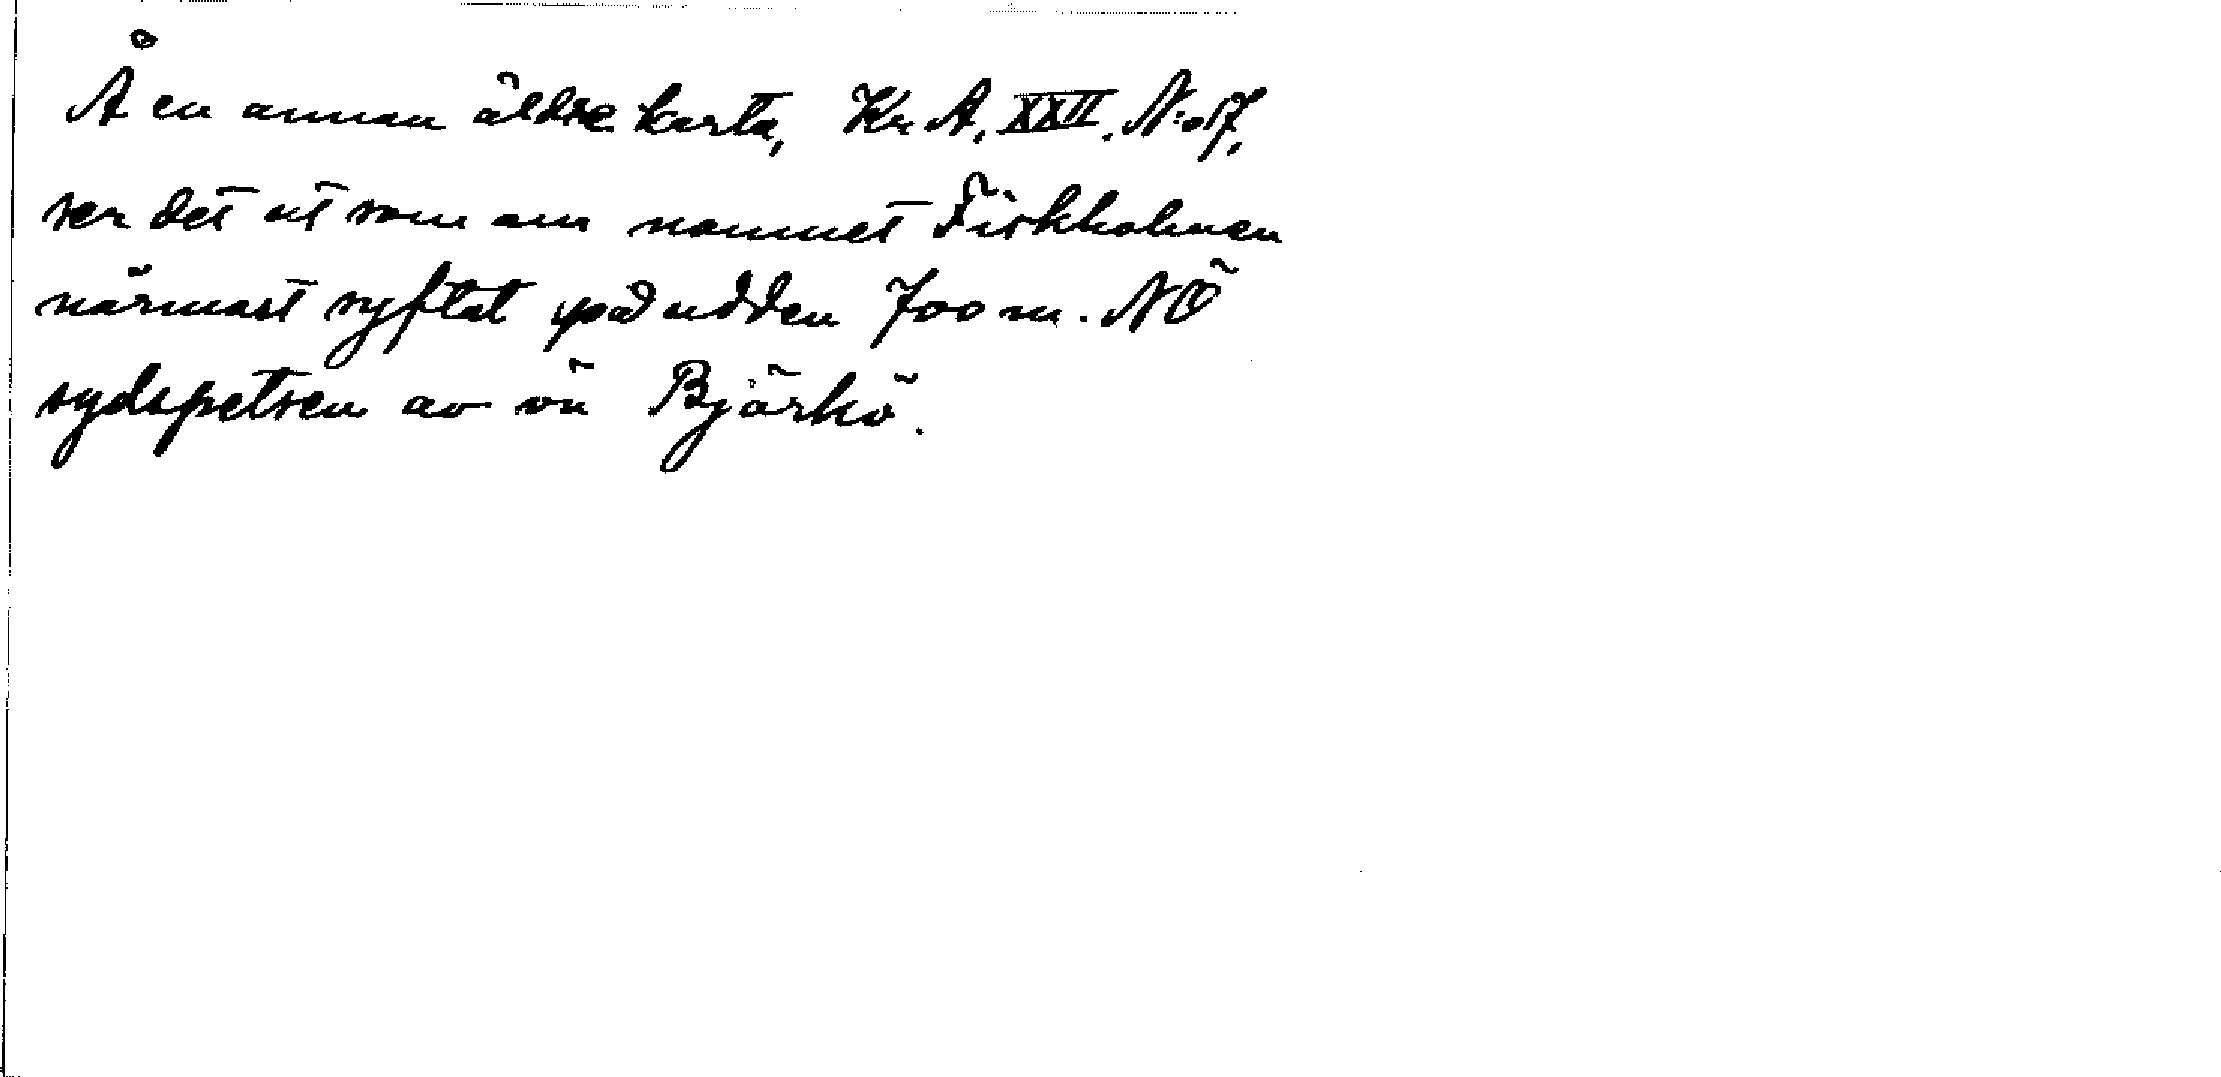 Å en annan äldre karta, Kr A. XXII. N:o 17,
ser det ut som om namnet Fiskholmen
närmast syftat på udden 700 m. NÖ
sydspetsen av ön Björkö.